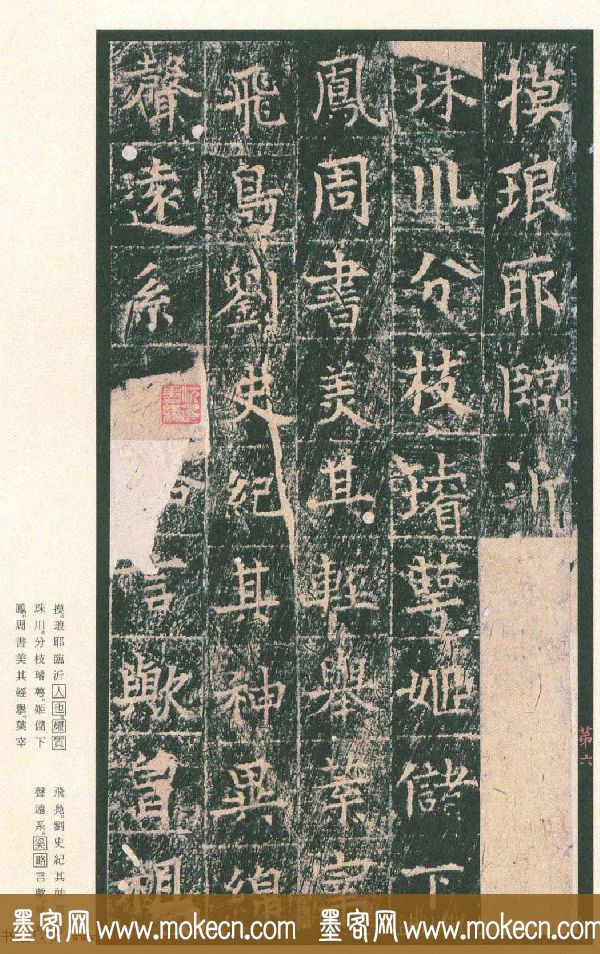 摸琅耶臨沂
珠川分枝璿萼姬儲下
鳳周書美其輕舉葉宰
飛鳧劉史紀其神異緜
聲遠系
言歟曽祖
第六
摸。琅耶臨沂人也。耀質
珠川。分枝璿萼。姬儲下
鳳。周書美其輕舉。葉宰
飛鳧。劉史紀其神
聲遠系。略言歟
墨客网 www.mokecn.com 墨客网 www.mokecn.com